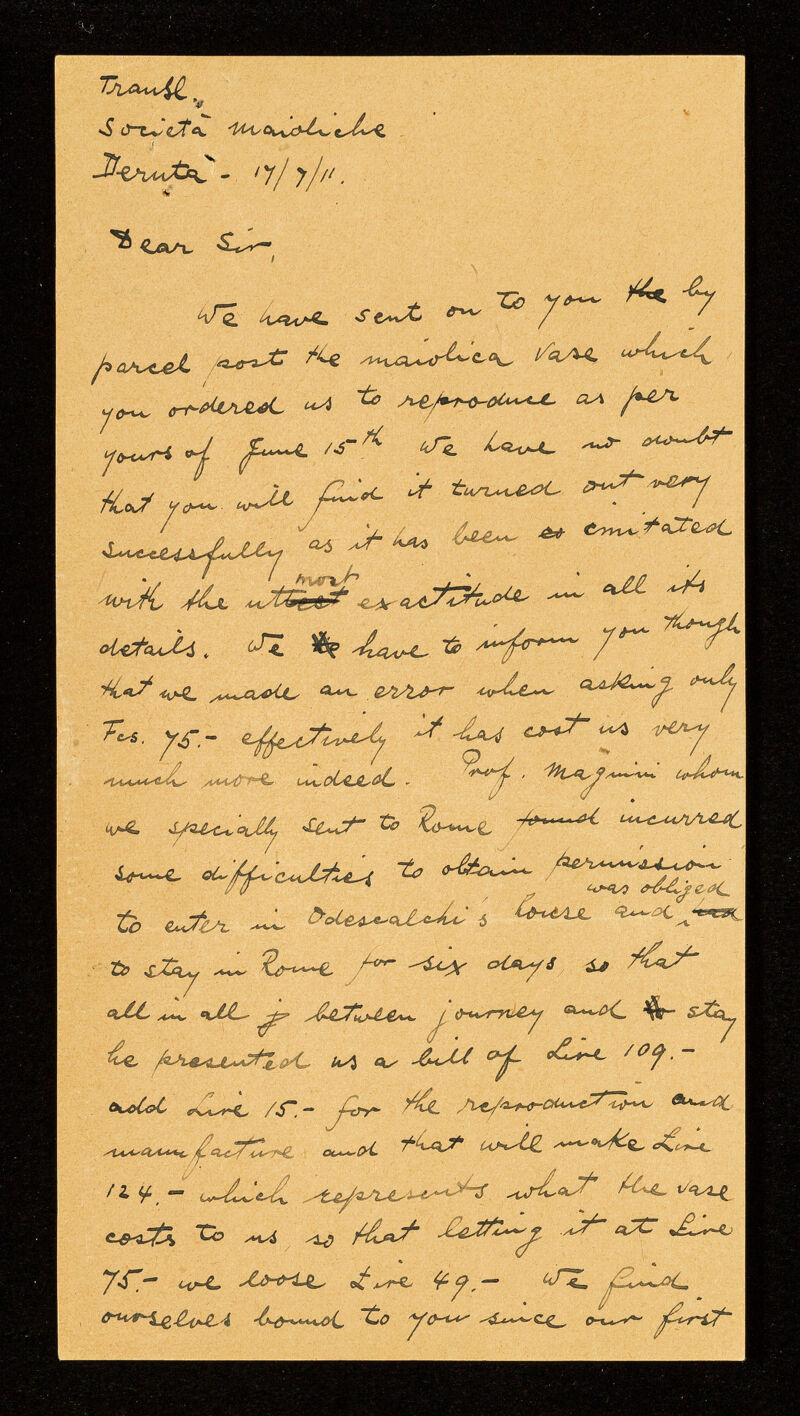 Transl.
Società maioliche
Deruta - 17/7/11.
Dear Sir,
We have sent on to you the by
parcel post the maiolica vase which
you ordered us to reproduce as per
yours of June 15th We have no doubt
that you will find it turned out very
successfully as it has been es imitated
most
with the uttest exactitude in all its
details. We have to inform you though
that we made an error when asking only
Fcs. 75.- effectively it has cost us very
much more indeed. Prof. Magnini whom
we specially sent to Rome found incurred
some difficulties to obtain permission
was obliged
to enter in Odescalchi's house and had
to stay in Rome for six days, so that
all in all j between journey and to stay
he presented us a bill of Lire 109.-
add Lire 15.- for the reproduction and
manufacture and that will make Lire
124.- which represents what the vase
costs to us, so that letting it at Lire
75.- we loose Lire 49.- We find
ourselves bound to you since our first